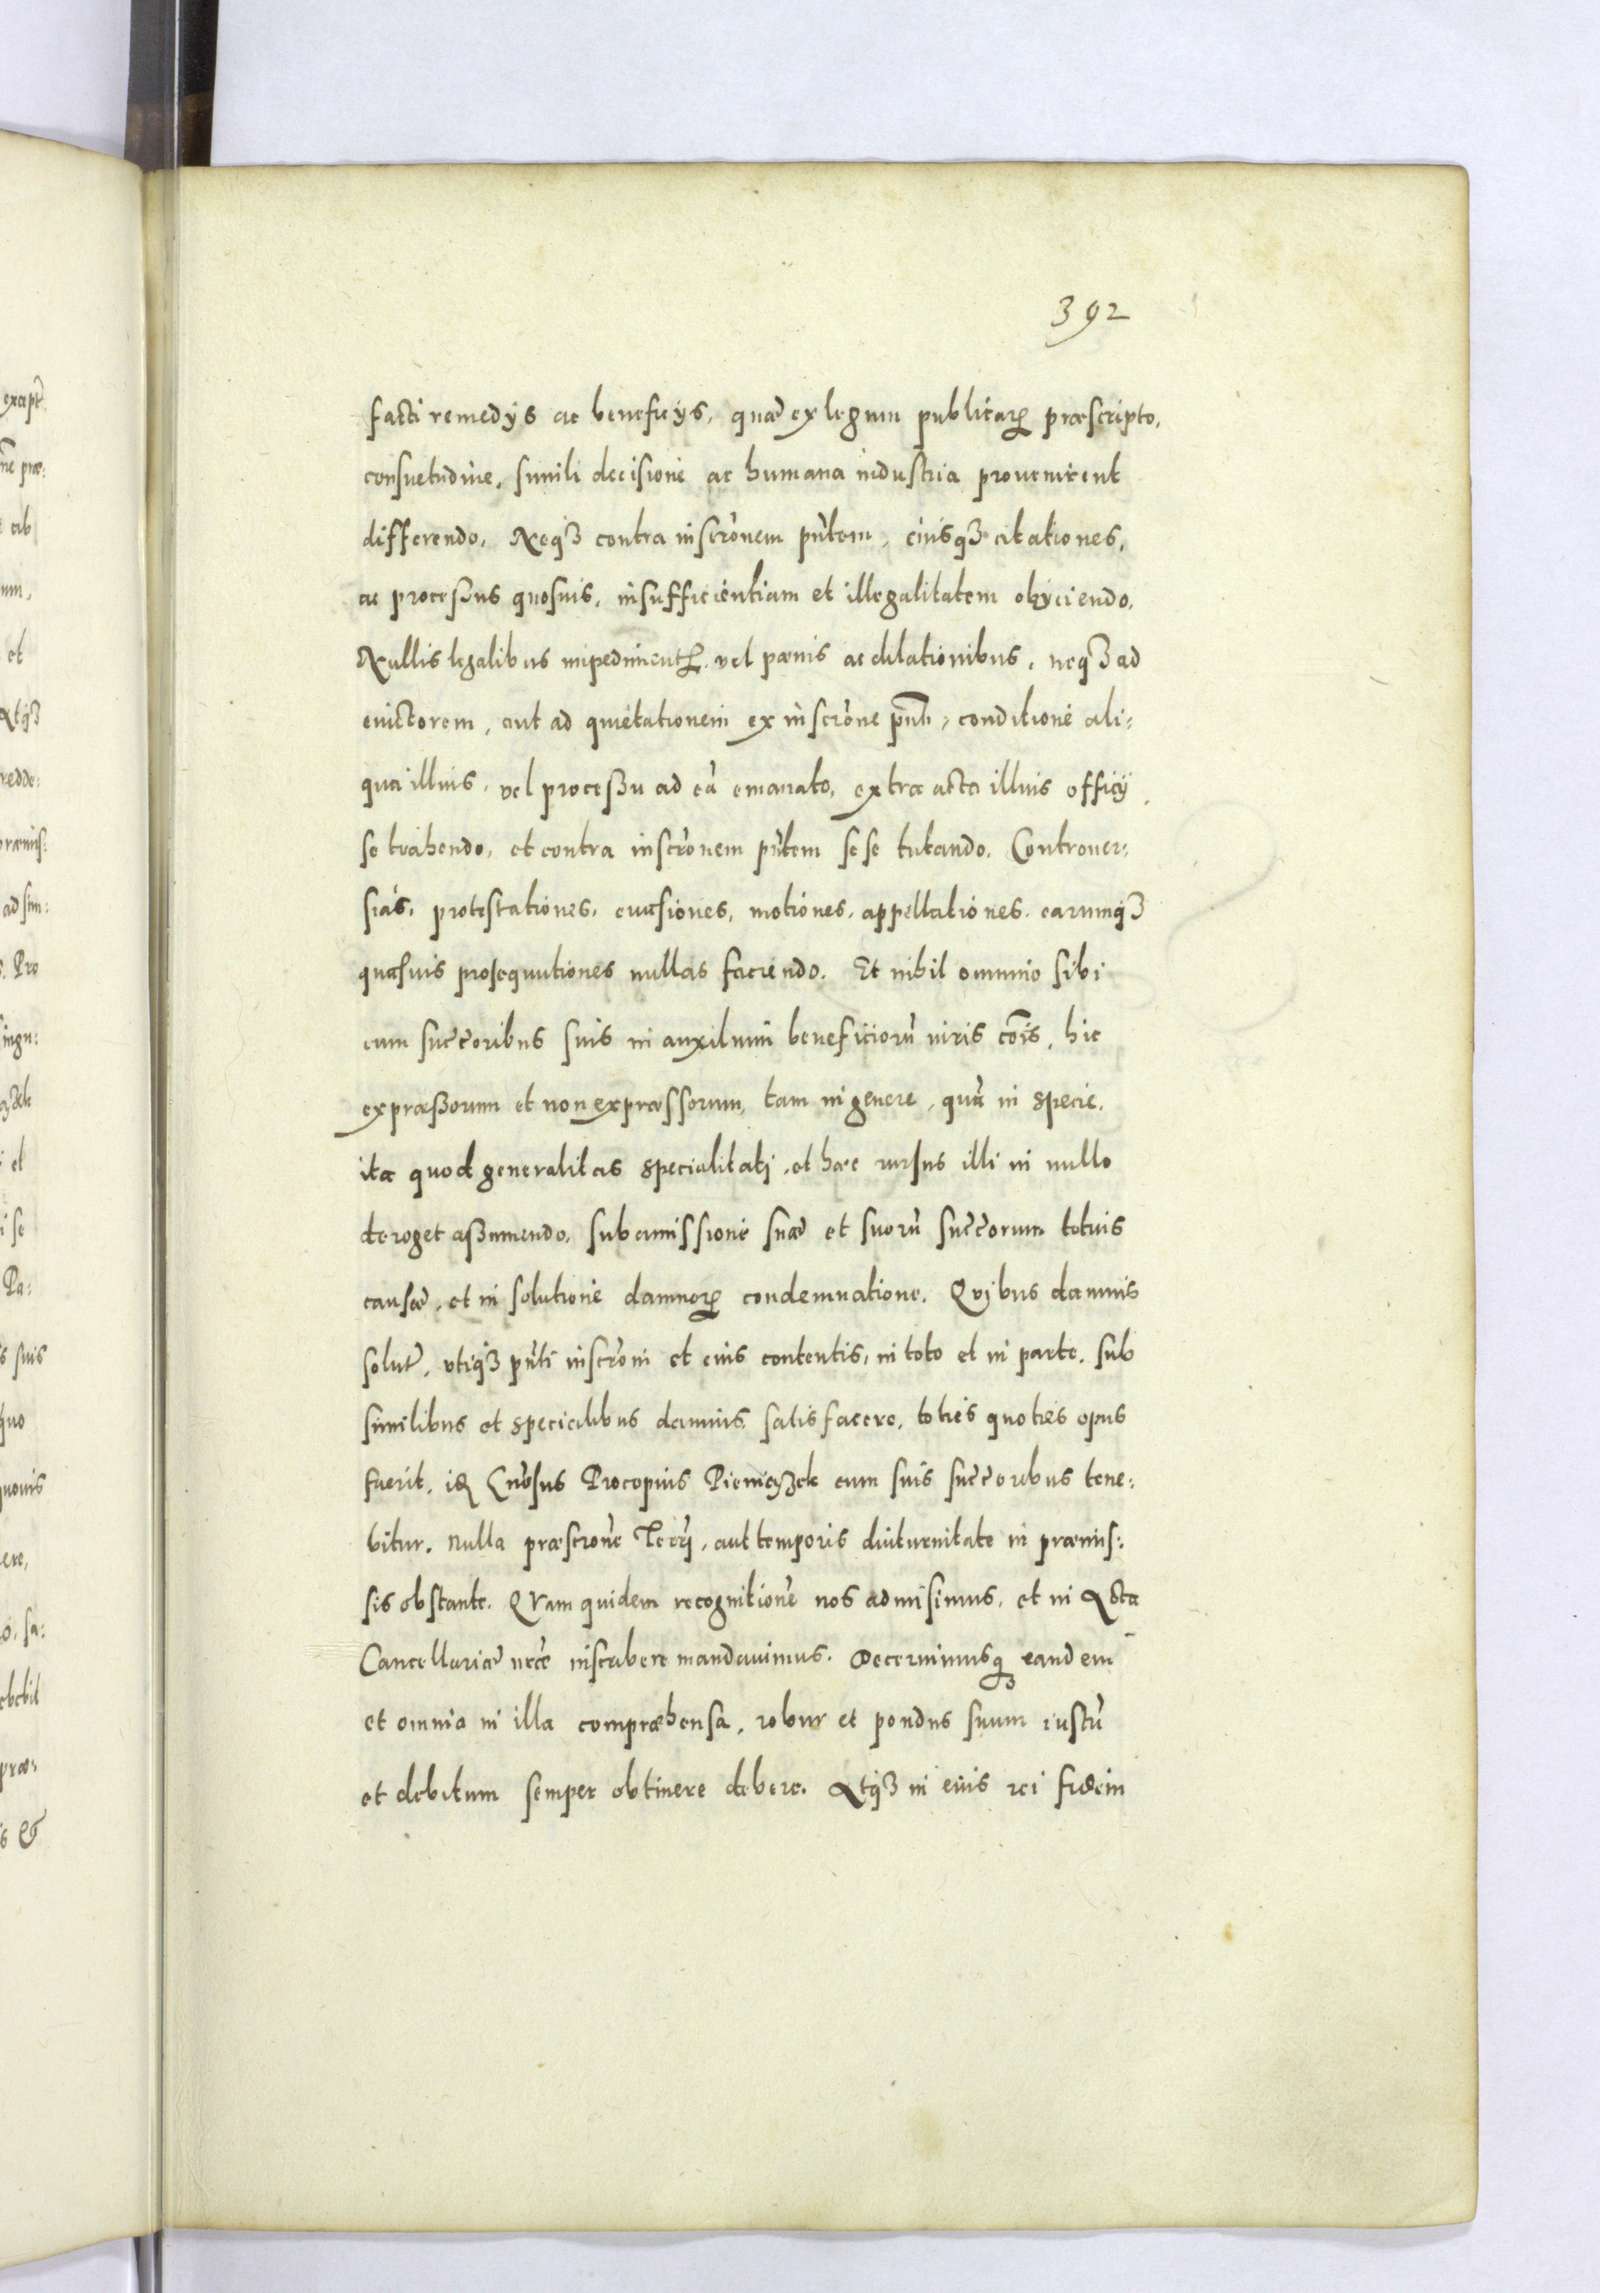 392
facti remedÿs ac beneficÿs, quæ ex legum publicarꝝ præscripto,
consuetudine, simili decisione ac humana industria provenirent
differendo. Neqʒ contra inscrōnem pn̄tem, eiusqʒ citationes,
ac processus quosvis, insufficientiam et illegalitatem obyciendo.
Nullis legalibus impedimentꝭ, vel pœnis ac dilationibus, neqʒ ad
evictorem, aut ad quietationem ex inscrōne pn̄ti, conditione ali:
qua illius, vel processu ad eā emanato, extra acta illius officÿ
se trahendo, et contra inscrōnem pn̄tem sese tutando. Controver:
sias, protestationes, evasiones, motiones, appellationes, earumqʒ
quasvis prosequutiones nullas faciendo. Et nihil omnino sibi
cum succ̄oribus suis in auxilium beneficiorū iuris cōis, hic
expræssorum et non expræssorum, tam in genere, quā in specie,
ita quod generalitas specialitati, et hæc rursus illi in nullo
deroget assumendo, sub amissione suæ et suorū succ̄orum totius
causæ, et in solutione damnorꝝ condemnatione. Quibus damnis
solutꝭ, utiqʒ pn̄ti inscrōni et eius contentis, in toto et in parte, sub
similibus et specialibus damnis satisfacere, toties quoties opus
fuerit, id Gn̄osus Procopius Pieniążek cum suis succ̄oribus tene:
bitur. Nulla præscrōne Terrī, aut temporis diuturnitate in præmis:
sis obstante. QVam quidem recognitionē nos admisimus, et in Acta
Cancellariæ nrǣ inscribere mandavimus. Decernimusqʒ eandem
et omnia in illa compræhensa, robur et pondus suum iustū
et debitum semper obtinere debere. Atqʒ in eius rei fidem
exapt̄
nē præ:
ab
um,
et
Atqʒ
redde:
præmis:
ad sin:
Pro
singu:
et
i se
Pa:
s suis
quo
quovis
ere,
o, sa:
debebit
præ:
is &